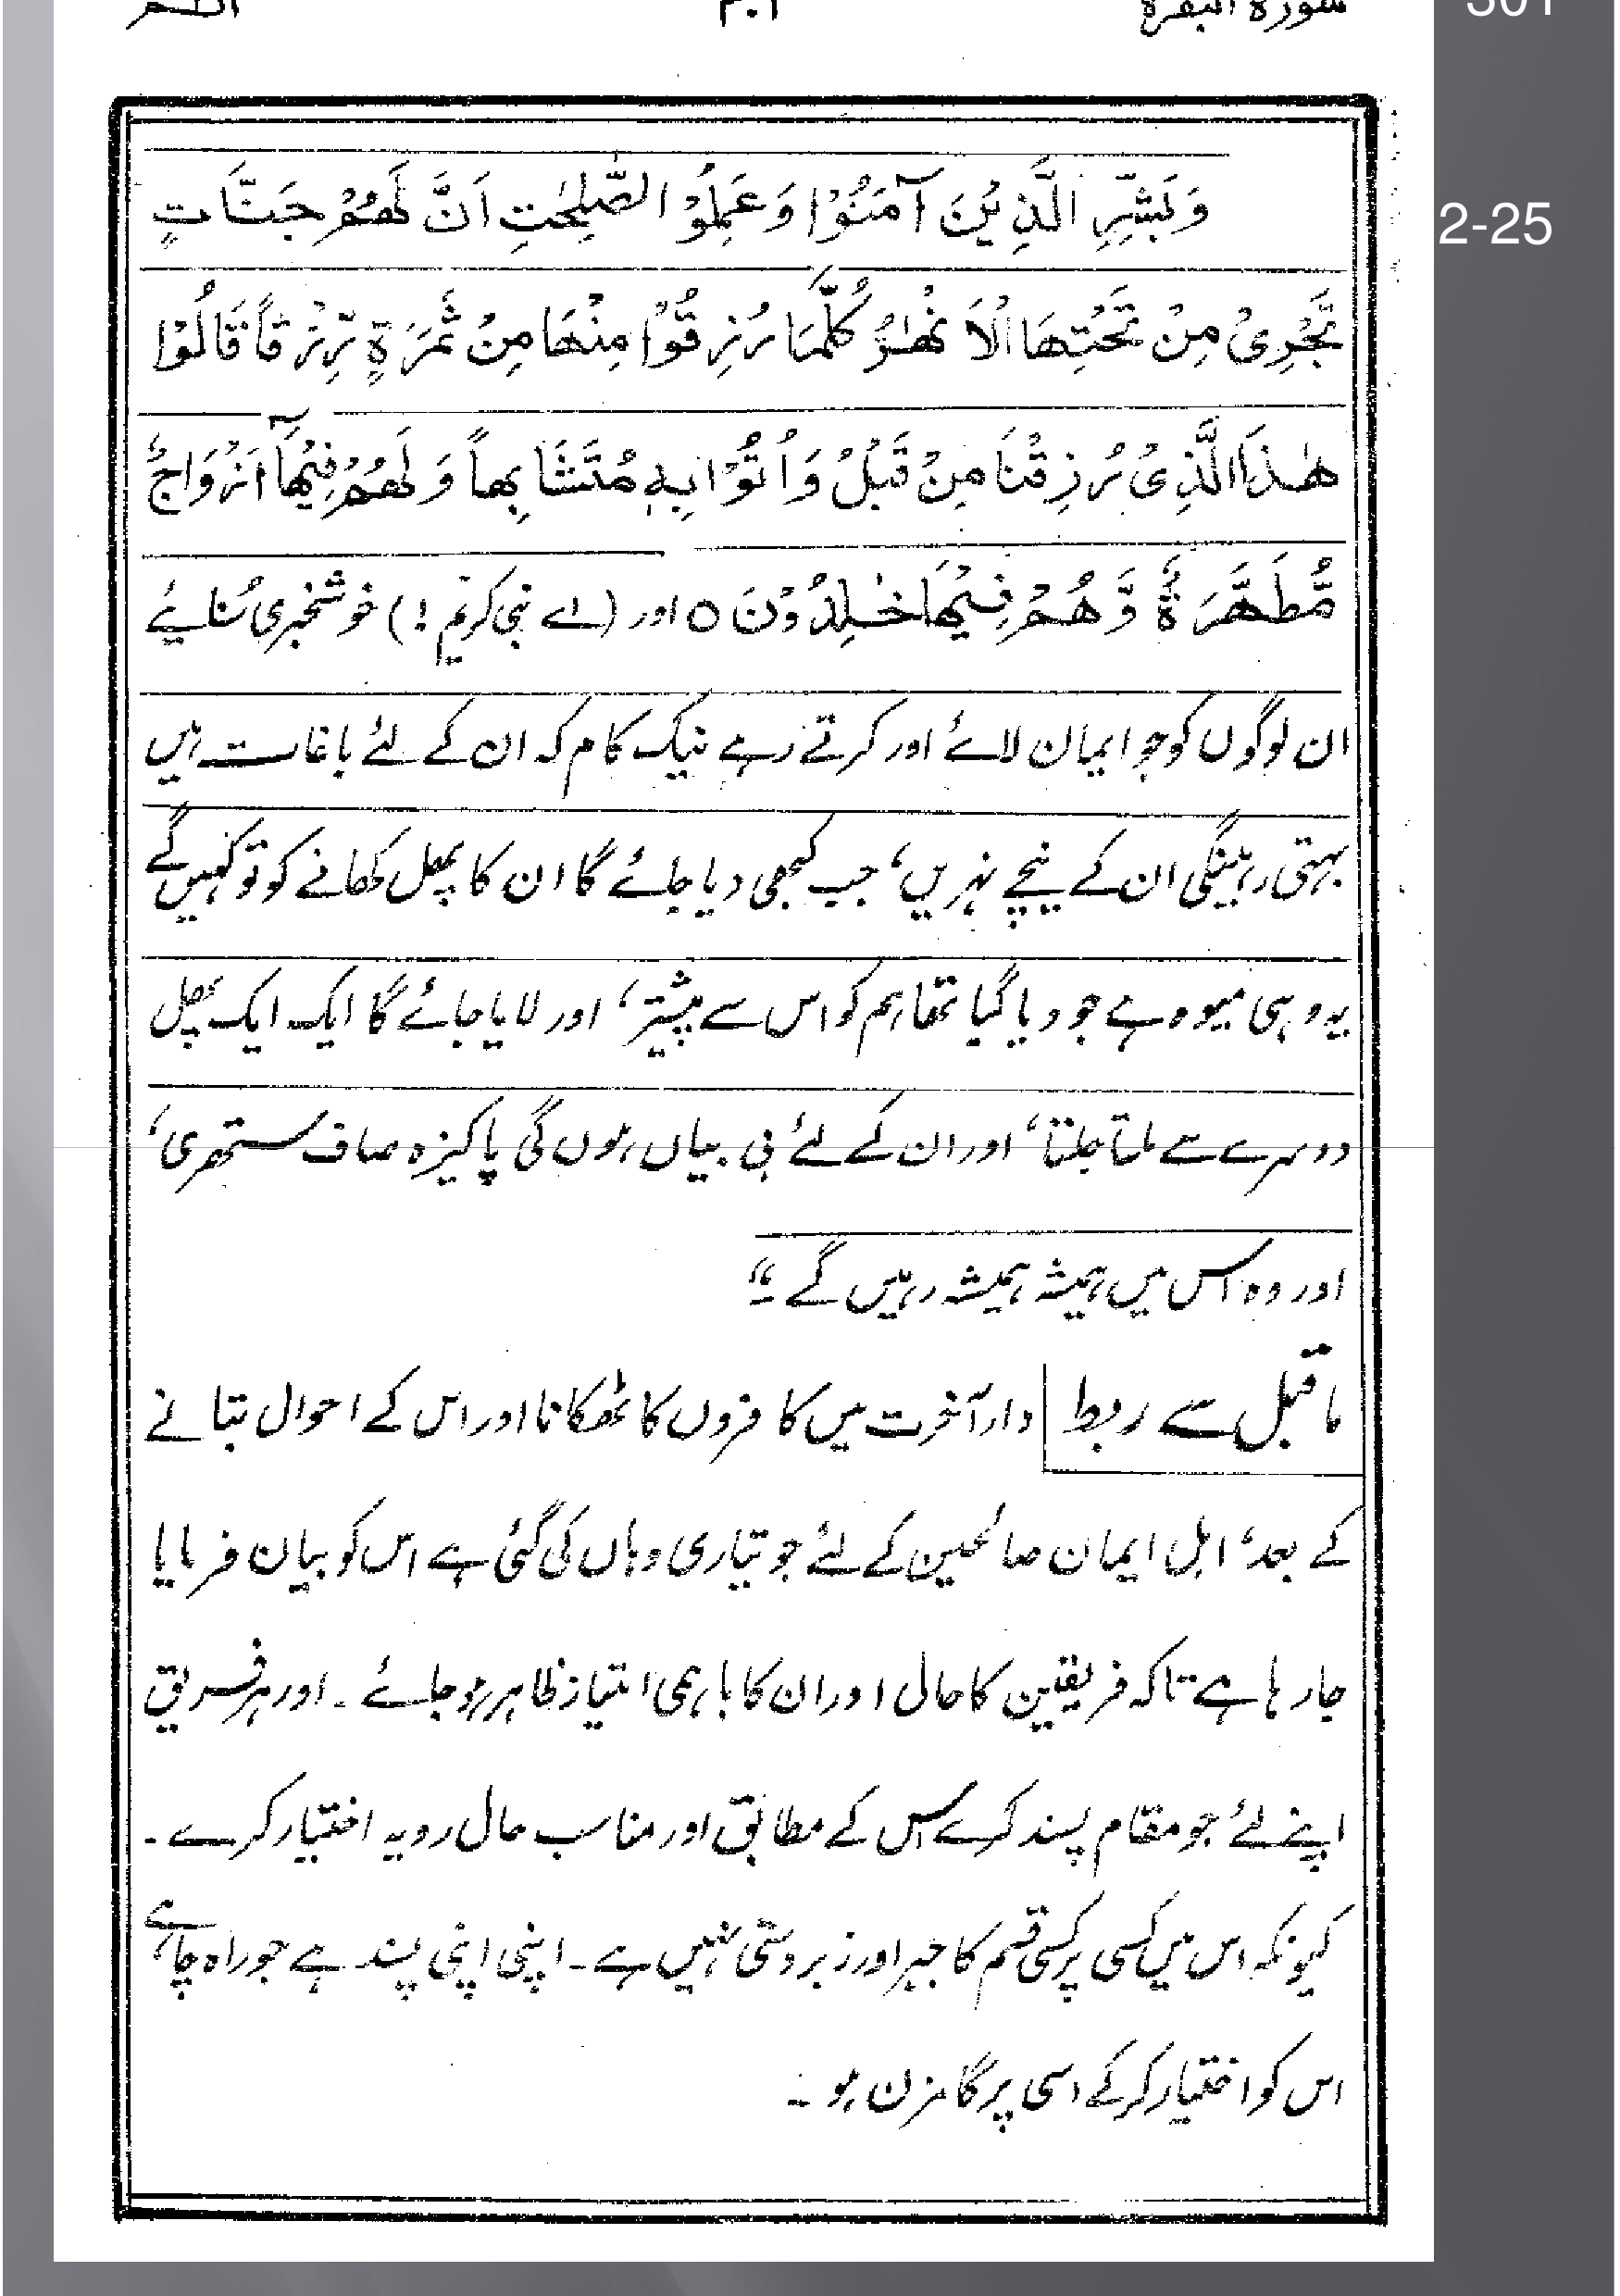 سورة البقرة ۳۰۱ الٓمٓ
301
وَبَشِّرِ الَّذِيْنَ آمَنُوْا وَعَمِلُوْا الصّٰلِحٰتِ اَنَّ لَهُمْ جَنَّاتٍ
2-25
تَجْرِيْ مِنْ تَحْتِهَا الْاَنْهٰرُ كُلَّمَا رُزِقُوْا مِنْهَا مِنْ ثَمَرَةٍ رِّزْقاً قَالُوْا
هٰذَا الَّذِيْ رُزِقْنَا مِنْ قَبْلُ وَاُتُوْا بِهٖ مُتَشَابِهاً وَلَهُمْ فِيْهَآ اَزْوَاجٌ
مُّطَهَّرَةٌ وَّهُمْ فِيْهَا خٰلِدُوْنَ ○ اور (اے نبی کریمؐ !) خوشخبری سُنایئے
ان لوگوں کو جو ایمان لائے اور کرتے رہے نیک کام کہ ان کے لئے باغات ہیں
بہتی رہینگی ان کے نیچے نہریں، جب کبھی دیا جائے گا ان کا پھل کھانے کو تو کہیں گے
یہ وہی میوہ ہے جو دیا گیا تھا ہم کو اس سے پیشتر، اور لایا جائے گا ایک ایک پھل
دوسرے سے ملتا جلتا، اور ان کے لئے بی بیاں ہوں گی پاکیزہ صاف ستھری،
اور وہ اس میں ہمیشہ ہمیشہ رہیں گے۔"
ماقبل سے ربط دار آخرت میں کافروں کا ٹھکانا اور اس کے احوال بتانے
کے بعد، اہل ایمان صالحین کے لئے جو تیاری وہاں کی گئی ہے اس کو بیان فرمایا
جا رہا ہے تاکہ فریقین کا حال اور ان کا باہمی امتیاز ظاہر ہو جائے۔ اور ہر فریق
اپنے لئے جو مقام پسند کرے اس کے مطابق اور مناسب حال رویہ اختیار کرے۔
کیونکہ اس میں کسی پر کسی قسم کا جبر اور زبردستی نہیں ہے۔ اپنی اپنی پسند ہے جو راہ چاہے
اس کو اختیار کر کے اسی پر گامزن ہو۔